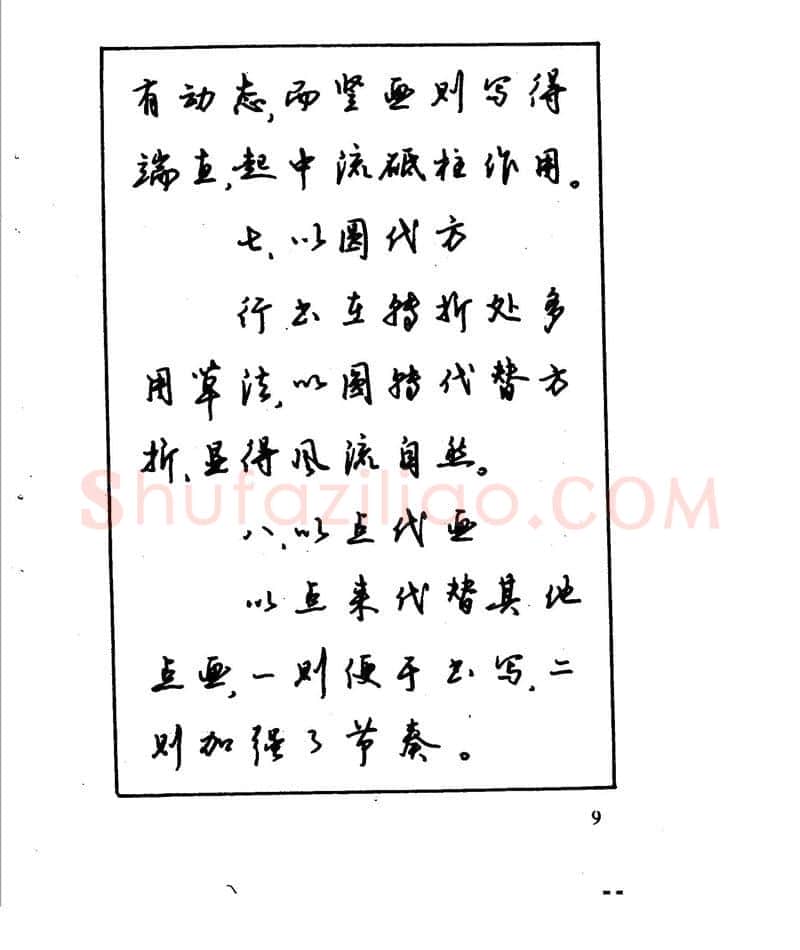 有动态,而竖画则写得
端直,起中流砥柱作用。
七、以圆代方
行书在转折处多
用草法,以圆转代替方
折,显得风流自然。
Shufaziliao.COM
八、以点代画
以点来代替其他
点画,一则便于书写,二
则加强了节奏。
9